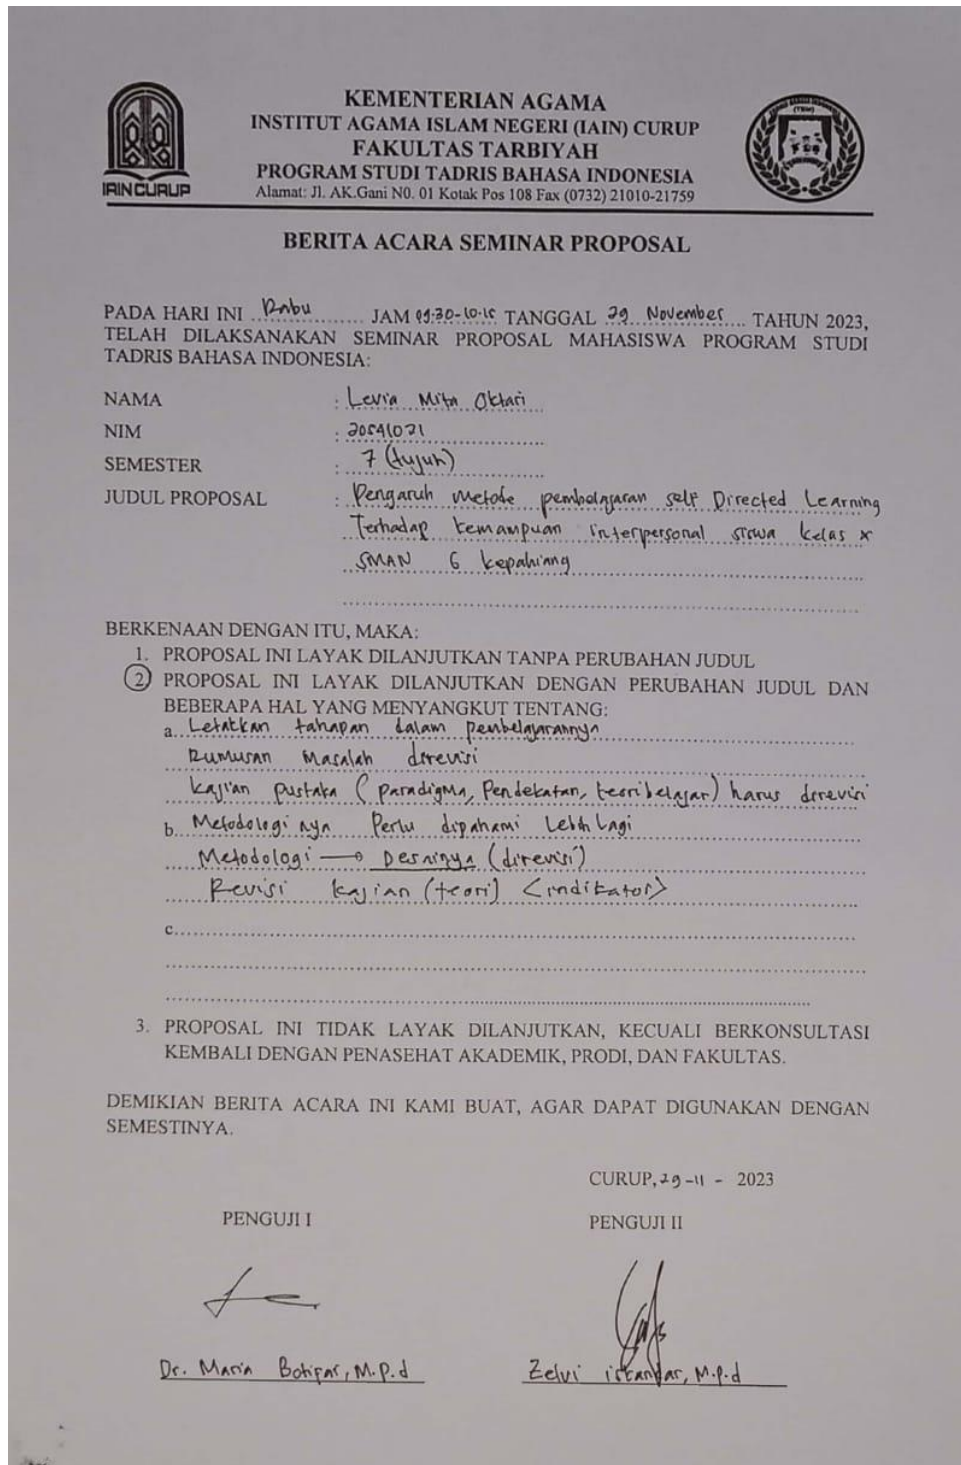 KEMENTERIAN AGAMA
INSTITUT AGAMA ISLAM NEGERI (IAIN) CURUP
FAKULTAS TARBIYAH
PROGRAM STUDI TADRIS BAHASA INDONESIA
Alamat: Jl. AK.Gani N0. 01 Kotak Pos 108 Fax (0732) 21010-21759
IAIN CURUP
BERITA ACARA SEMINAR PROPOSAL
PADA HARI INI Rabu JAM 09:30-10.15 TANGGAL 29 November TAHUN 2023,
TELAH DILAKSANAKAN SEMINAR PROPOSAL MAHASISWA PROGRAM STUDI
TADRIS BAHASA INDONESIA:
NAMA : Levia Mita Oktari
NIM : 20541021
SEMESTER : 7 (tujuh)
JUDUL PROPOSAL : Pengaruh metode pembelajaran self Directed Learning
Terhadap kemampuan interpersonal siswa kelas x
SMAN 6 kepahiang
BERKENAAN DENGAN ITU, MAKA:
1. PROPOSAL INI LAYAK DILANJUTKAN TANPA PERUBAHAN JUDUL
2 PROPOSAL INI LAYAK DILANJUTKAN DENGAN PERUBAHAN JUDUL DAN
BEBERAPA HAL YANG MENYANGKUT TENTANG:
a. Letakkan tahapan dalam pembelajarannya
Rumusan Masalah direvisi
kajian pustaka (paradigma, Pendekatan, teori belajar) harus direvisi
b. Metodologi nya Perlu dipahami Lebih Lagi
Metodologi → Desainya (direvisi)
Revisi kajian (teori) <indikator>
c.
3. PROPOSAL INI TIDAK LAYAK DILANJUTKAN, KECUALI BERKONSULTASI
KEMBALI DENGAN PENASEHAT AKADEMIK, PRODI, DAN FAKULTAS.
DEMIKIAN BERITA ACARA INI KAMI BUAT, AGAR DAPAT DIGUNAKAN DENGAN
SEMESTINYA.
CURUP, 29-11 - 2023
PENGUJI I
PENGUJI II
Dr. Maria Botifar, M.P.d
Zelvi iskandar, M.P.d